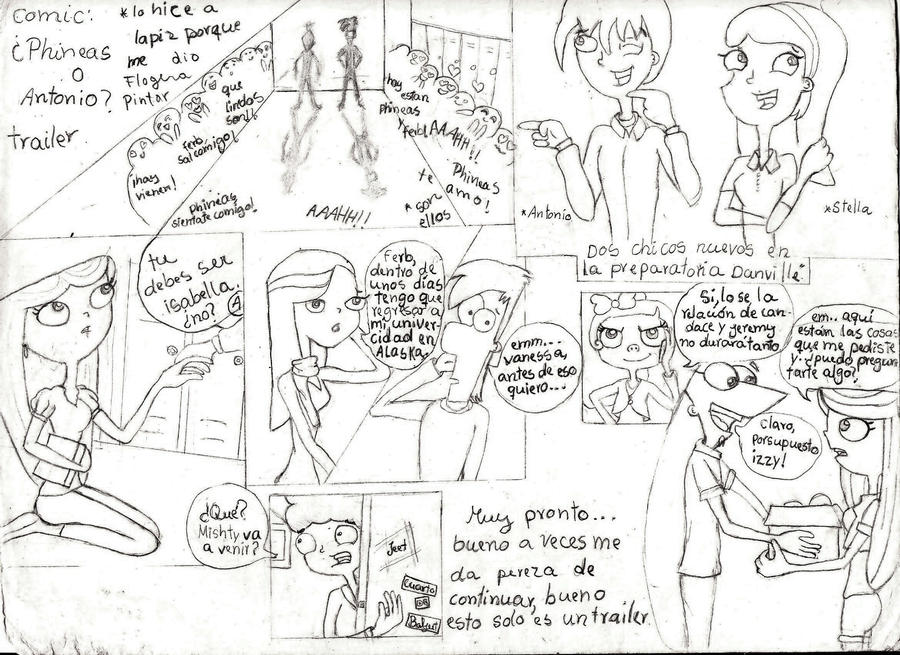 comic:
¿Phineas
O
Antonio?
trailer
*lo hice a
lapiz porque
me dio
Flogera
Pintar
¡hay
vienen!
ferb,
sal comigo!
que
lindos
son!!
Phineas
sientate comigo!
AAAHH!!
hay estan
phineas
y ferb! AAAHH!!
Phineas
te amo!
*son
ellos
*Antonio
*Stella
Dos chicos nuevos en
La preparatoria Danville"
tu
debes ser
isabella
¿no?
A
Ferb,
dentro de
unos dias
tengo que
regresar a
mi univer-
cidad en
ALASKA.
emm...
vanessa,
antes de eso
quiero...
Si, lo se la
relación de can-
dace y jeremy
no durara tanto
em.. aqui
estain las cosas
que me pediste
y.. ¿puedo pregun
tarte algo?
Claro,
porsupuesto
izzy!
¿Que?
Mishty va
a venir?
Jeet
Cuarto
de
Baljeet
Muy pronto...
bueno a veces me
da pereza de
continuar, bueno
esto solo es un trailer.